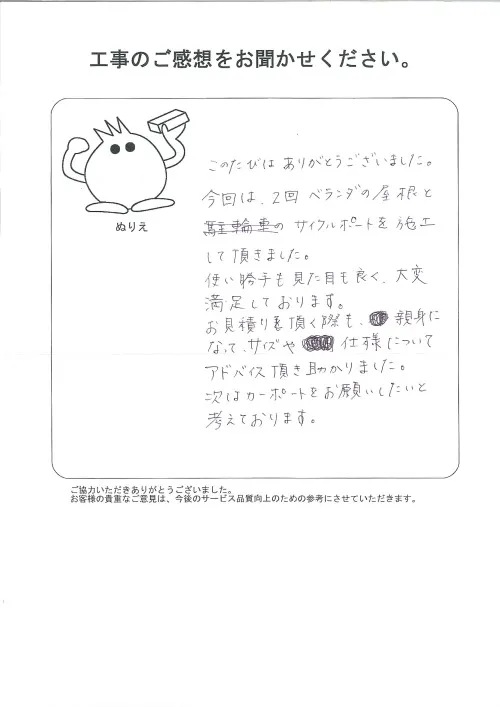 工事のご感想をお聞かせください。
このたびは ありがとうございました。
今回は、2回 ベランダの屋根と
駐輪車の サイクルポートを施工
して頂きました。
使い勝手も見た目も良く、大変
満足しております。
お見積りを頂く際も、親身に
なって、サイズや 仕様について
アドバイス頂き助かりました。
次はカーポートをお願いしたいと
考えております。
ぬりえ
ご協力いただきありがとうございました。
お客様の貴重なご意見は、今後のサービス品質向上のための参考にさせていただきます。